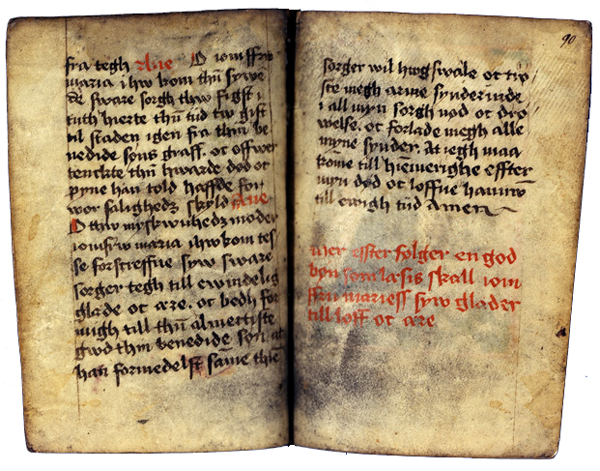 fra tegh Aue O iomffrw
maria ihw kom thū sywe
de sware sorgh thw figst i
tith hierte thn̄ tid tw gist
til staden igen fra thin be
nedide søns graff. oc offwer
tenckte thn̄ hwarde død oc
pyne han told haffde for
wor salighedz skyld Aue
O thw myskwnhedz moder
iomfrw maria ihwkom tes
se forstreffne syw sware
sorger tegh till ewindelig
glæde oc ære. oc bedh for
migh till thn̄ almectiste
gwd thin benedide søn. at
han formedelst samme thie
90
sorger wil hwgswale oc trø
ste megh arme synderinde
i all myn sorgh nød oc drø
welse. oc forlade megh alle
myne synder. At iegh maa
komme till hēmerighe effter
myn død oc loffue hannum
till ewigh tiid Amen
Her effter følger en god
bøn som læsis skall iom
ffrw marieff syw glæder
till loff oc ære